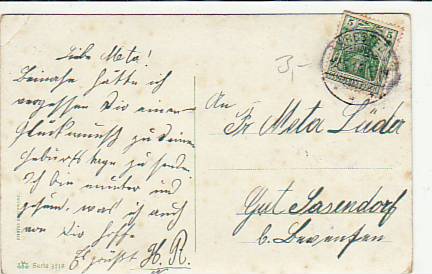 Liebe Meta!
Beinahe hätte ich
vergessen Dir einen
Glückwunsch zu Deinem
Geburtstage zu senden
Ich bin munter und
gesund, was ich auch
von Dir hoffe
Es grüßt H. R.
Serie 3517
5 5
3,-
An
Frl Meta Lüder
Gut Sasendorf
b. Bevensen